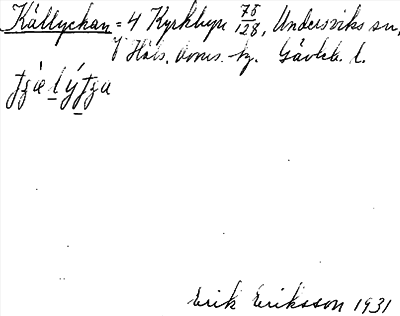 Källyckan = 4 Kyrkbyn 78/128, Undersviks sn,
V Häls. doms. hg. Gävleb. l.
Erik Eriksson 1931